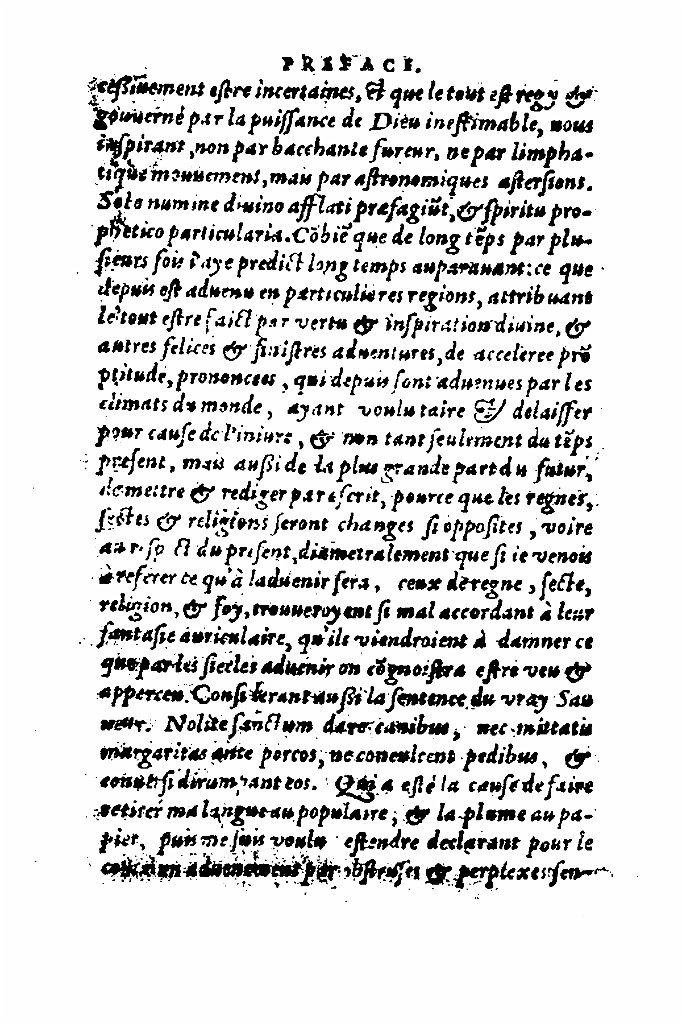 PREFACE.
cessiuement estre incertaines, & que le tout est regy &
gouuerné par la puissance de Dieu inestimable, nous
inspirant, non par bacchante fureur, ne par limpha-
tique mouuement, mais par astronomiques assertions.
Solo numine diuino afflati præsagiũt, & spiritu pro-
phetico particularia. Cõbiẽ que de long tẽps par plu-
sieurs fois i'aye predict long temps auparauant: ce que
depuis est aduenu en particulieres regions, attribuant
le tout estre faict par vertu & inspiration diuine, &
autres felices & sinistres aduentures, de acceleree prõ
ptitude, prononcees, qui depuis sont aduenues par les
climats du monde, ayant voulu taire & delaisser
pour cause de l'iniure, & non tant seulement du tẽps
present, mais aussi de la plus grande part du futur,
de mettre & rediger par escrit, pource que les regnes,
sectes & religions seront changes si opposites, voire
au resp ct du present, diametralement que si ie venois
à referer ce qu'à laduenir sera, ceux de regne, secte,
religion, & foy, trouueroyent si mal accordant à leur
fantasie auriculaire, qu'ils viendroient à damner ce
que par les siecles aduenir on cõgnoistra estre veu &
apperceu. Considerant aussi la sentence du vray Sau
ueur. Nolite sanctum dare canibus, nec mittatis
margaritas ante porcos, ne conculcent pedibus, &
conuersi dirumpant eos. Qui a esté la cause de faire
retirer ma langue au populaire, & la plume au pa-
pier, puis me suis voulu estendre declarant pour le
commun aduenement par obstruses & perplexes sen-